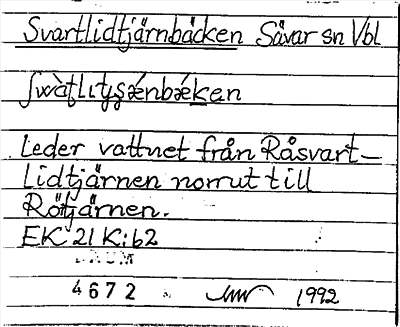 Svartlidtjärnbäcken Sävar sn Vbl
Leder vattnet från Råsvart-
Lidtjärnen norrut till
Rötjärnen.
EK 21 K:b2
DAUM
4672 1992